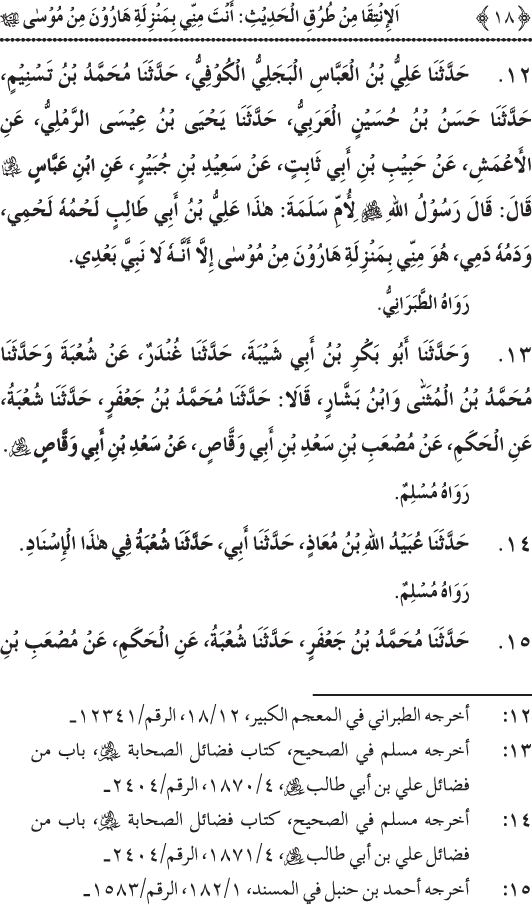 ﴿١٨﴾ اَلإِنْتِقَا مِنْ طُرُقِ الْحَدِيْثِ: أَنْتَ مِنِّي بِمَنْزِلَةِ هَارُوْنَ مِنْ مُوْسٰى
١٢. حَدَّثَنَا عَلِيُّ بْنُ الْعَبَّاسِ الْبَجَلِيُّ الْكُوْفِيُّ، حَدَّثَنَا مُحَمَّدُ بْنُ تَسْنِيْمٍ،
حَدَّثَنَا حَسَنُ بْنُ حُسَيْنٍ الْعَرَبِيُّ، حَدَّثَنَا يَحْيَى بْنُ عِيْسَى الرَّمْلِيُّ، عَنِ
الْأَعْمَشِ، عَنْ حَبِيْبِ بْنِ أَبِي ثَابِتٍ، عَنْ سَعِيْدِ بْنِ جُبَيْرٍ، عَنِ ابْنِ عَبَّاسٍ
قَالَ: قَالَ رَسُوْلُ اللهِ ﷺ لِأُمِّ سَلَمَةَ: هٰذَا عَلِيُّ بْنُ أَبِي طَالِبٍ لَحْمُهُ لَحْمِي،
وَدَمُهُ دَمِي، هُوَ مِنِّي بِمَنْزِلَةِ هَارُوْنَ مِنْ مُوْسٰى إِلَّا أَنَّهُ لَا نَبِيَّ بَعْدِي.
رَوَاهُ الطَّبَرَانِيُّ.
١٣. وَحَدَّثَنَا أَبُو بَكْرِ بْنُ أَبِي شَيْبَةَ، حَدَّثَنَا غُنْدَرٌ، عَنْ شُعْبَةَ وَحَدَّثَنَا
مُحَمَّدُ بْنُ الْمُثَنّٰى وَابْنُ بَشَّارٍ، قَالَا: حَدَّثَنَا مُحَمَّدُ بْنُ جَعْفَرٍ، حَدَّثَنَا شُعْبَةُ،
عَنِ الْحَكَمِ، عَنْ مُصْعَبِ بْنِ سَعْدِ بْنِ أَبِي وَقَّاصٍ، عَنْ سَعْدِ بْنِ أَبِي وَقَّاصٍ .
رَوَاهُ مُسْلِمٌ.
١٤. حَدَّثَنَا عُبَيْدُ اللهِ بْنُ مُعَاذٍ، حَدَّثَنَا أَبِي، حَدَّثَنَا شُعْبَةُ فِي هٰذَا الْإِسْنَادِ.
رَوَاهُ مُسْلِمٌ.
١٥. حَدَّثَنَا مُحَمَّدُ بْنُ جَعْفَرٍ، حَدَّثَنَا شُعْبَةُ، عَنِ الْحَكَمِ، عَنْ مُصْعَبِ بْنِ
١٢: أخرجه الطبراني في المعجم الكبير، ١٨/١٢، الرقم/١٢٣٤١ـ
١٣: أخرجه مسلم في الصحيح، كتاب فضائل الصحابة ، باب من
فضائل علي بن أبي طالب ، ١٨٧٠/٤، الرقم/٢٤٠٤ـ
١٤: أخرجه مسلم في الصحيح، كتاب فضائل الصحابة ، باب من
فضائل علي بن أبي طالب ، ١٨٧١/٤، الرقم/٢٤٠٤ـ
١٥: أخرجه أحمد بن حنبل في المسند، ١٨٢/١، الرقم/١٥٨٣ـ